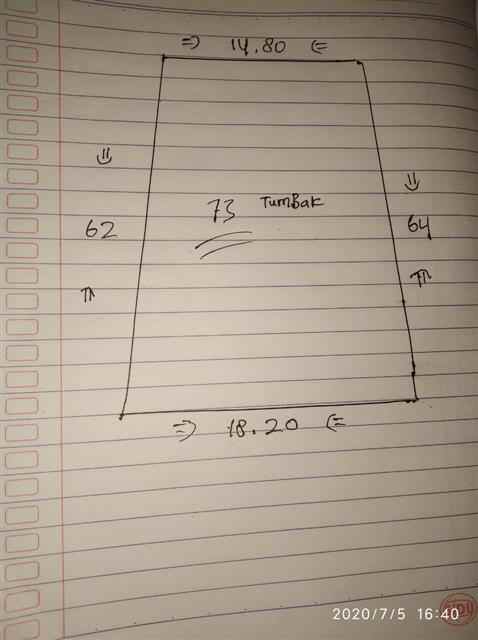 => 14.80 (=
=>
73 TumBak
=>
62
64
=>
=>
=> 18.20 (=
2020/7/5 16:40